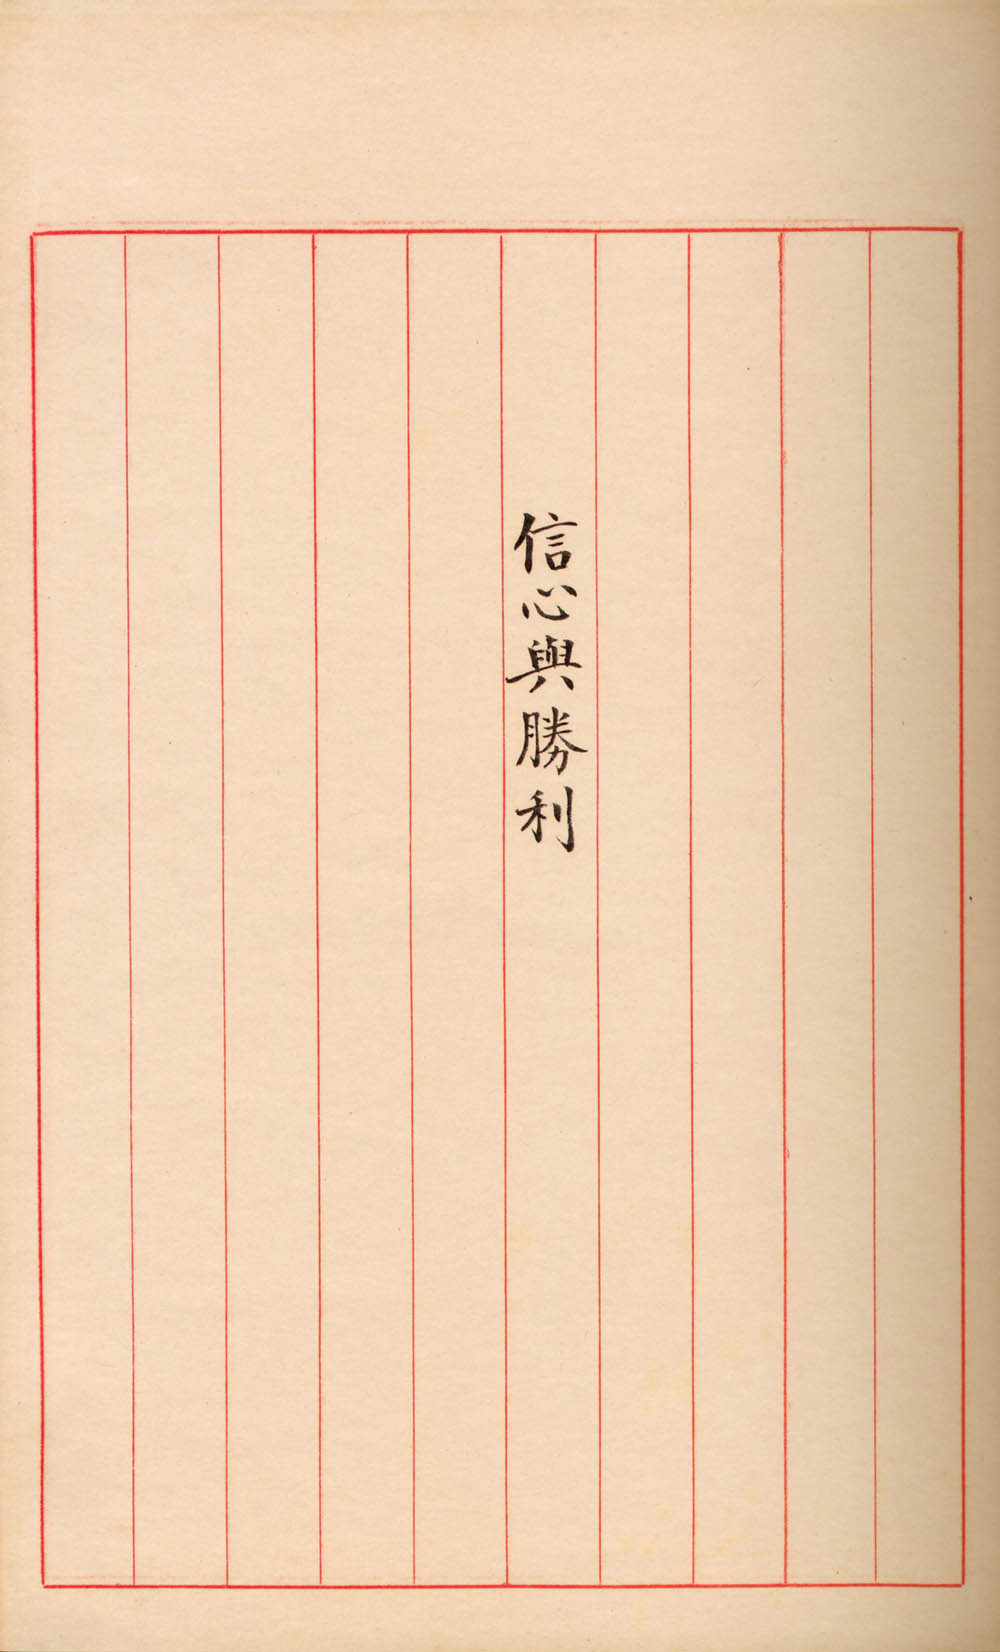 信心與勝利